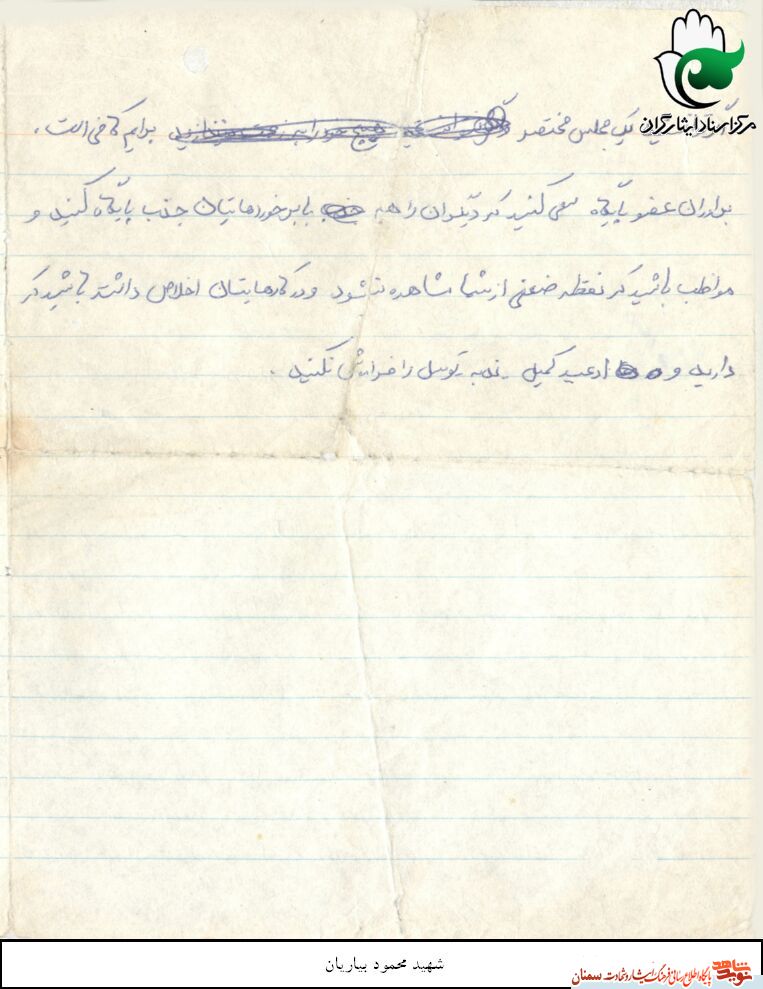 مرکز اسناد ایثارگران
یک مجلس مختصر برایم کافی است.
برادران عضو پایگاه سعی کنید که دیگران را هم با برخوردهایتان جذب پایگاه کنید و
مواظب باشید که نقطه ضعفی از شما مشاهده نشود و در کارهایتان اخلاص داشته باشید که
دارید و ادعیه کمیل ندبه توسل را فراموش نکنید.
شهید محمود بیاریان
نوید شاهد
پایگاه اطلاع رسانی فرهنگ ایثار و شهادت سمنان